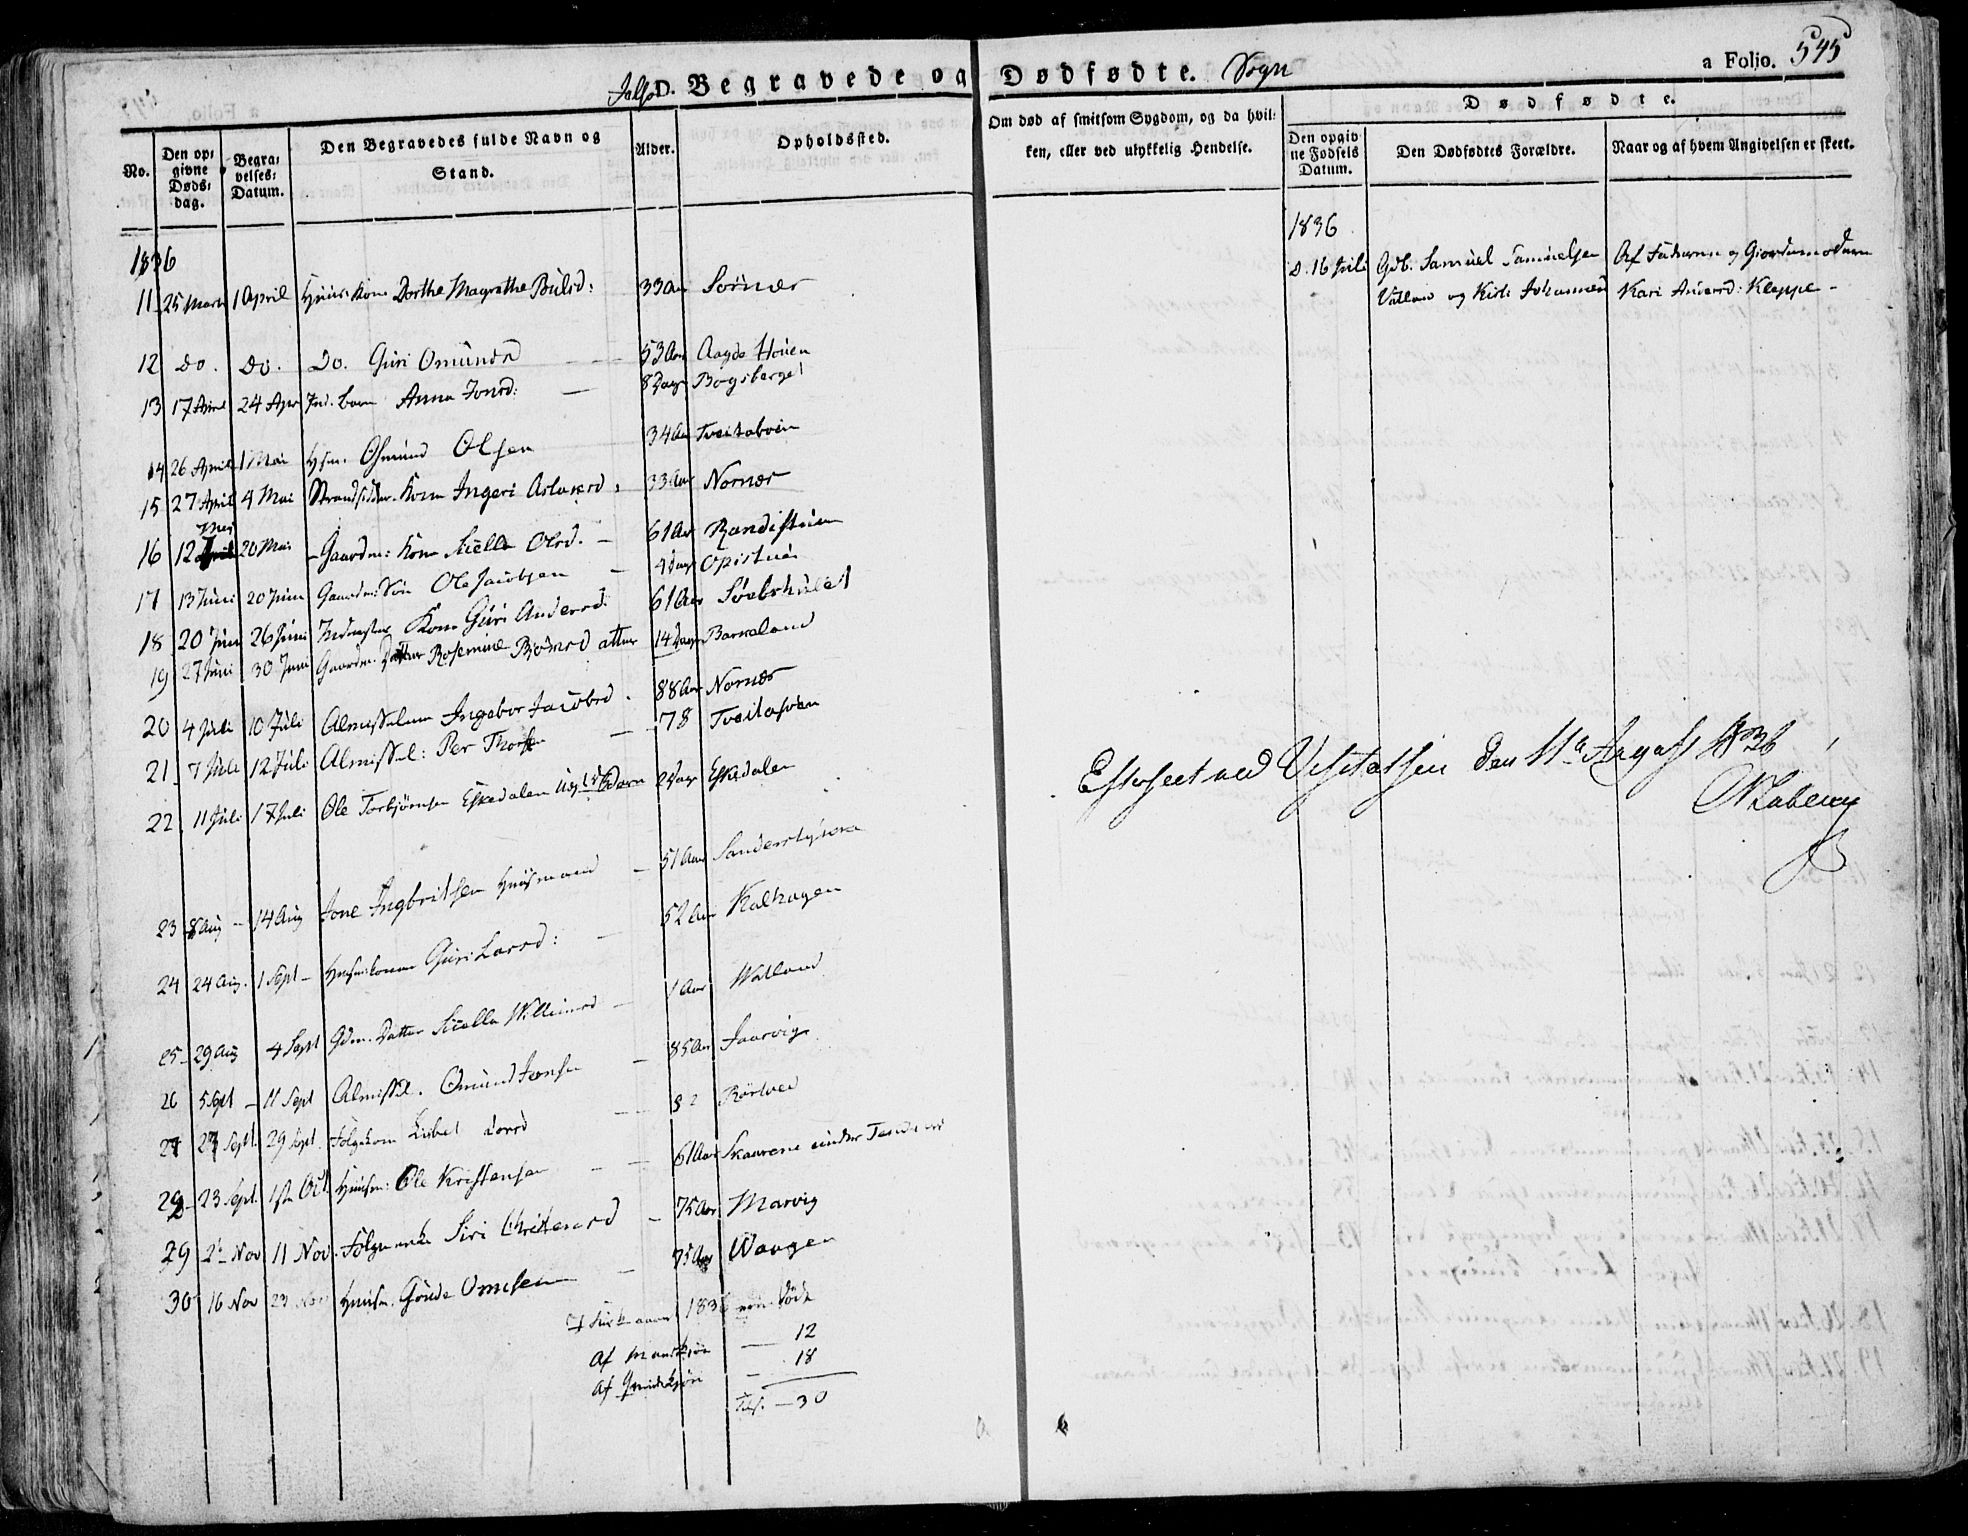 Jelse D. Begravede og Dødfødte. Sogn a Folio. 545
No. Den opgivne Døds-dag. Begravelses-Datum. Den Begravedes fulde Navn og Stand. Alder. Opholdssted. Om død af smitsom Sygdom, og da hvilken, eller ved ulykkelig Hendelse. Dødfødte.
Den opgivne Fødsels Datum. Den Dødfødtes Forældre. Naar og af hvem Angivelsen er skeet.
1836
11 25 Marts 1 April Huusm. Kone Dorthe Magrethe Poulsd: 33 Aar Sørnær
12 Do. Do. Do. Guri Omundsd 53 Aar Aagde Houen
13 17 April 24 Apr Ind. barn Anna Jonsd: — 8 Dage Bogsberget
14 26 April 1 Mai Hsm. Osmund Olsen 34 Aar Tveitaboen
15 27 April 4 Mai Strandsidder Kone Ingeri Aslaksd. 33 Aar Nornær
16 12 Mai 20 Mai Gaardm: Kone Siella Olsd. — 61 Aar Randistuen
17 13 Juni 20 Juni Gaardm: Søn Ole Jacobsen — 4 Dage Opistuen
18 20 Juni 26 Juni Kone Guri Andersd. 61 Aar
19 27 Juni 30 Juni Gaardm. Datter Rosemine Bjørnsd 14 Dage Barkaland
20 4 Juli 10 Juli Almisselem Ingebor Jacobsd. 88 Aar Nornær
21 7 Juli 12 Juli Almissel: Per Thorsen — 78 Tveitaboen
22 11 Juli 17 Juli Ole Torbjørnsen Eskedalen Barn 2 Dage Eskedalen
23 8 Aug — 14 Aug Jone Ingbritsen Huusmand — 51 Aar
24 24 Aug. 1 Sept — Huusm. kone Guri Larsd: — 52 Aar Kalhagen
25 29 Aug 4 Sept Gdm. Datter Siella Willumsd — 1 Aar Watland
26 5 Sept — 11 Sept Almissel. Omund Jonsen — 85 Aar Jaarvig
27 27 Sept. 29 Sept. Følgekone Lisbet Larsd — 82 Rørtved
28 23 Sept. 1ste Oct. Huusm: Ole Kristensen — 61 Aar Skaarene under
29 2 Nov 11 Nov. Følgeenke Siri Christensd — 75 Aar Marvig
30 16 Nov 23 Nov Huusm. Goude Omelsen — 75 Aar Waagen
I Kirkeaaret 1836 ere døde
Af Mandkjøn — 12
Af Qvindekjøn — 18
Tils. — 30
1836
D. 16 Juli Gdb. Samuel Samuelsen Af Faderen og Giordemoderen
Vatland og Kirsti Johannesd Kari Andersd: Kleppe —
Efterseet ved Visitatsen den 11te August 1836